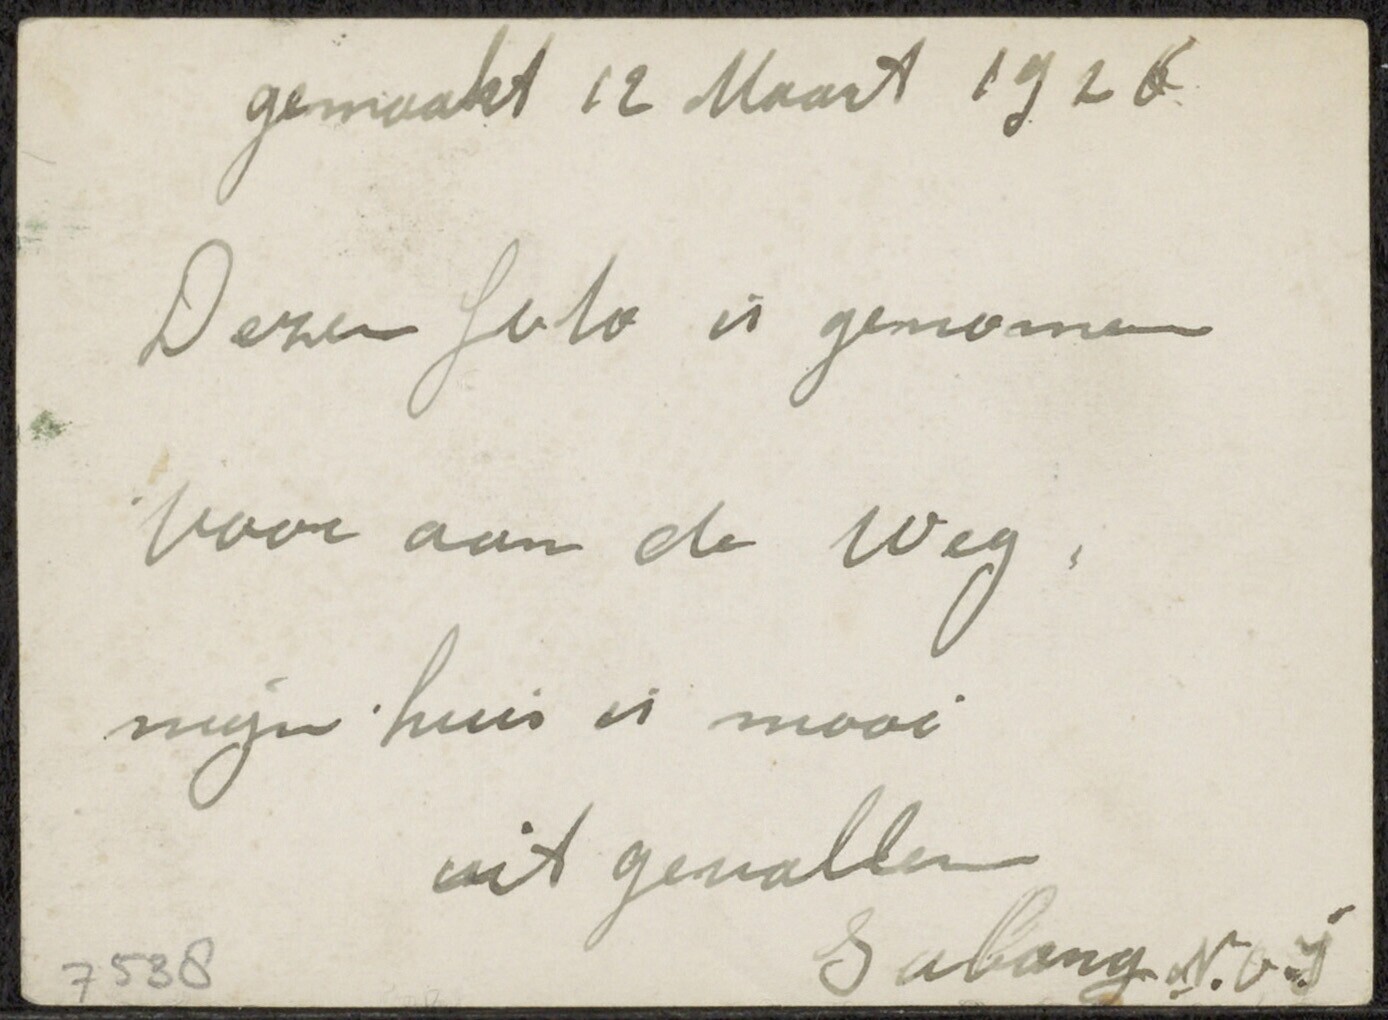 gemaakt 12 Maart 1926
Dezen foto is genomen
voor aan de weg,
mijn huis is mooi
uit gevallen
Sabang N.O.I
7538